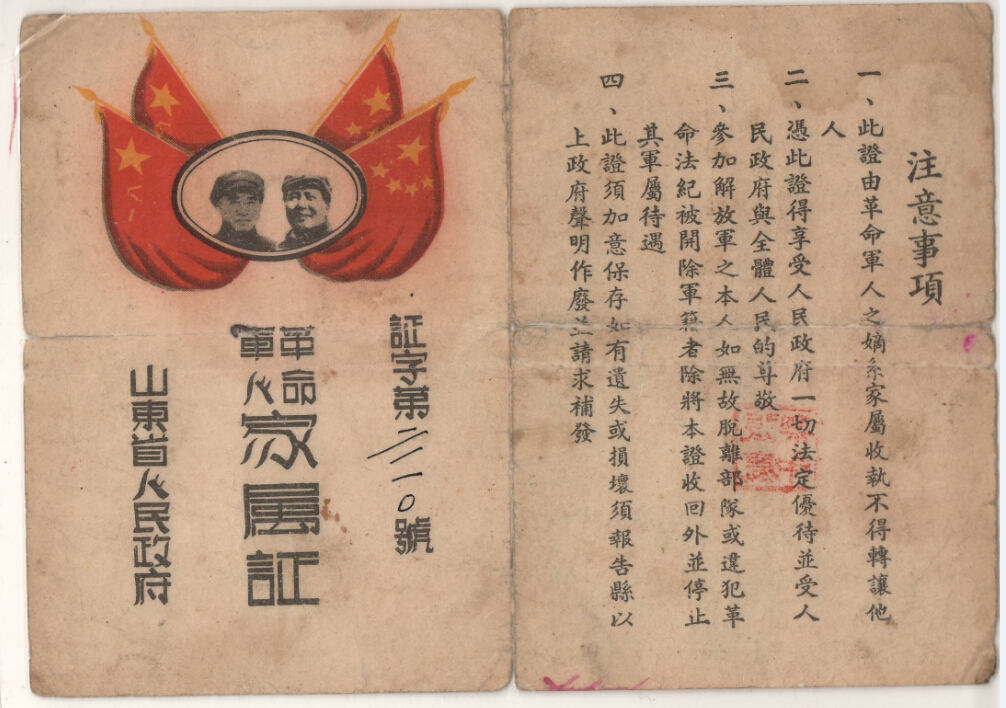 注意事項
一、此證由革命軍人之嫡系家屬收執不得轉讓他
人
二、憑此證得享受人民政府一切法定優待並受人
民政府與全體人民的尊敬
三、參加解放軍之本人如無故脫離部隊或違犯革
命法紀被開除軍籍者除將本證收回外並停止
其軍屬待遇
四、此證須加意保存如有遺失或損壞須報告縣以
上政府聲明作廢並請求補發
証字第二二一〇號
革命
軍人
家屬証
山東省人民政府